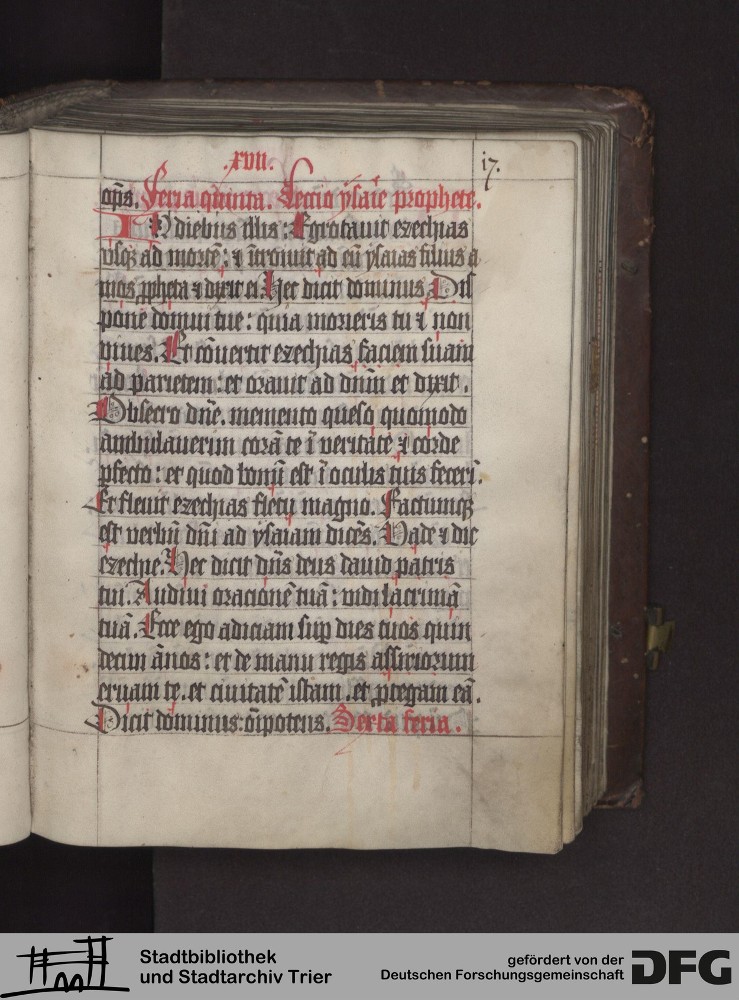 .xvii.
17.
op̄s. Feria quinta. Lectio ysaie prophete.
IN diebus illis: Egrotauit ezechias
vsq; ad mortē: ⁊ ītrouit ad eū ysaias filius a
mos ꝓpheta ⁊ dixit ei. Hec dicit dominus. Dis
pone domui tue: quia morieris tu ⁊ non
viues. Et cōuertit ezechias faciem suam
ad parietem: et orauit ad dn̄m et dixit.
Obsecro dn̄e. memento queso quomodo
ambulauerim corā te ī veritate ⁊ corde
ꝑfecto: et quod bonū est ī oculis tuis fecerī.
Et fleuit ezechias fletu magno. Factumq;
est verbū dn̄i ad ysaiam dicēs. Vade ⁊ dic
ezechie. Hec dicit dn̄s deus dauid patris
tui. Audiui orationē tuā: vidi lacrimā
tuā. Ecce ego adiciam suꝑ dies tuos quin
decim ānos: et de manu regis assiriorum
eruam te. et ciuitatē istam. et ꝓtegam eā.
Dicit dominus: oīpotens. Sexta feria.
Stadtbibliothek
und Stadtarchiv Trier
gefördert von der
Deutschen Forschungsgemeinschaft
DFG